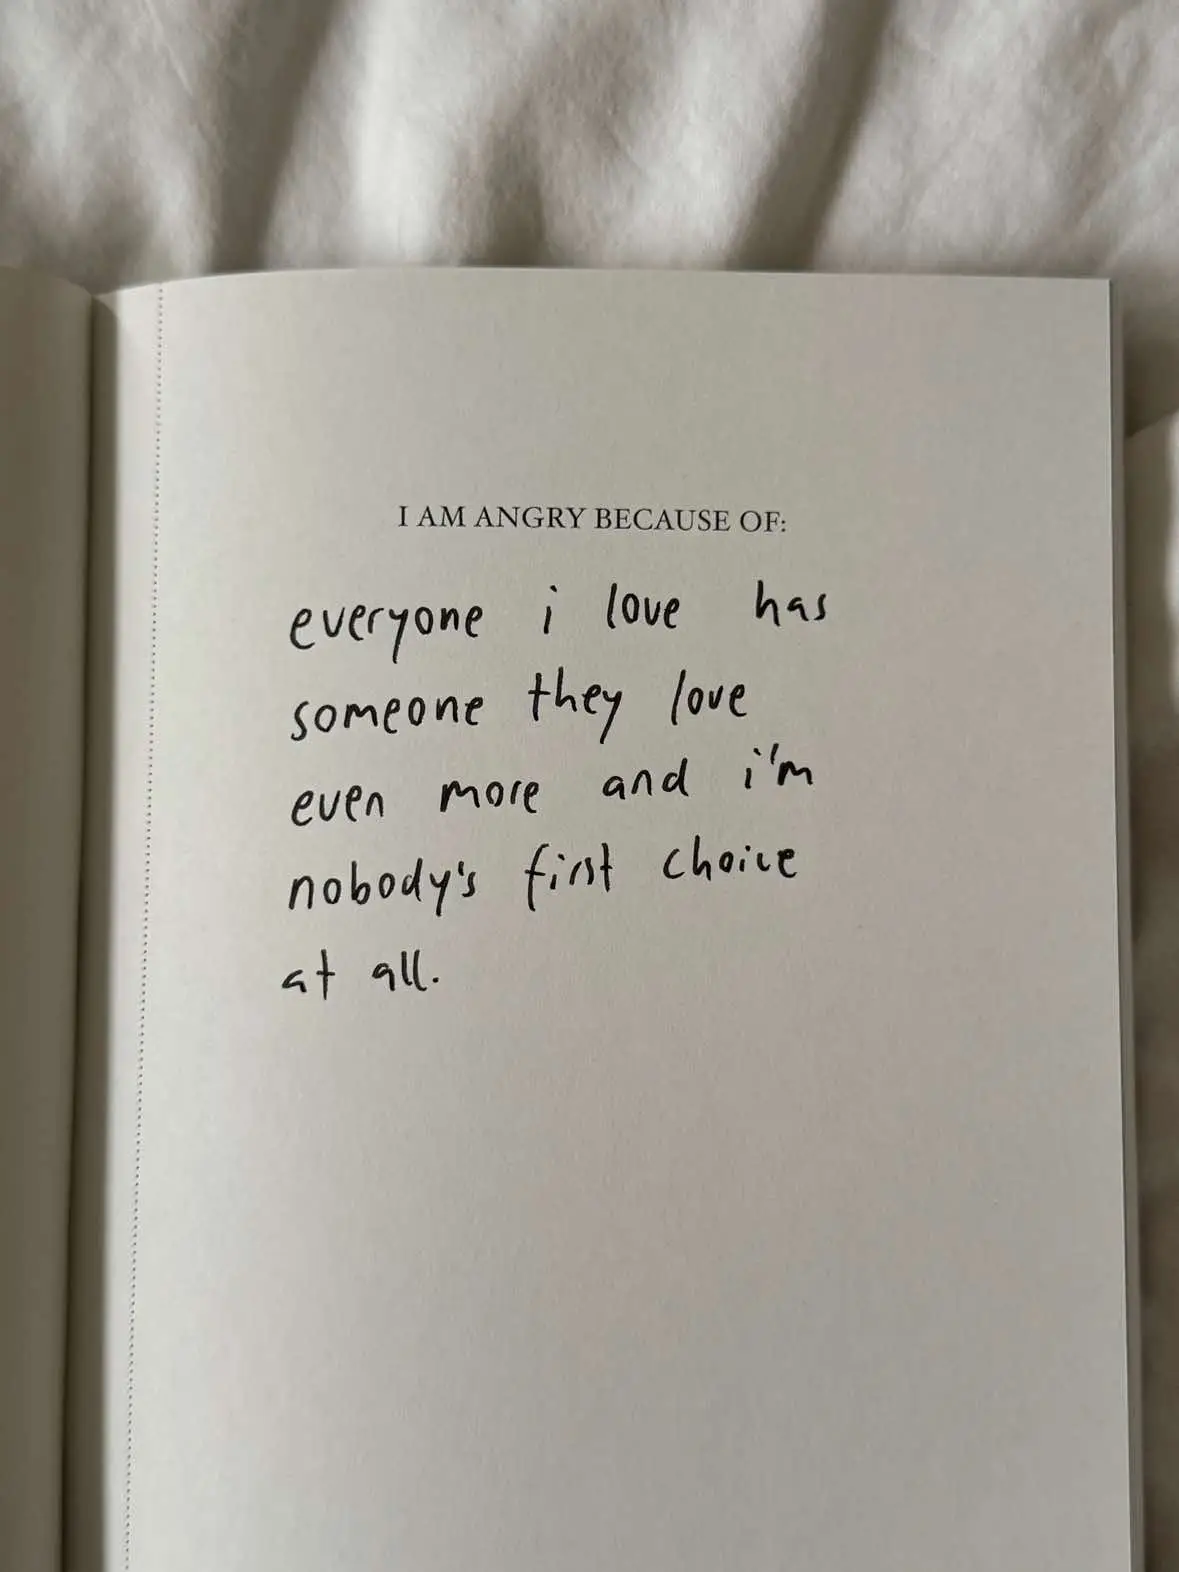 I AM ANGRY BECAUSE OF:
everyone i love has
someone they love
even more and i'm
nobody's first choice
at all.